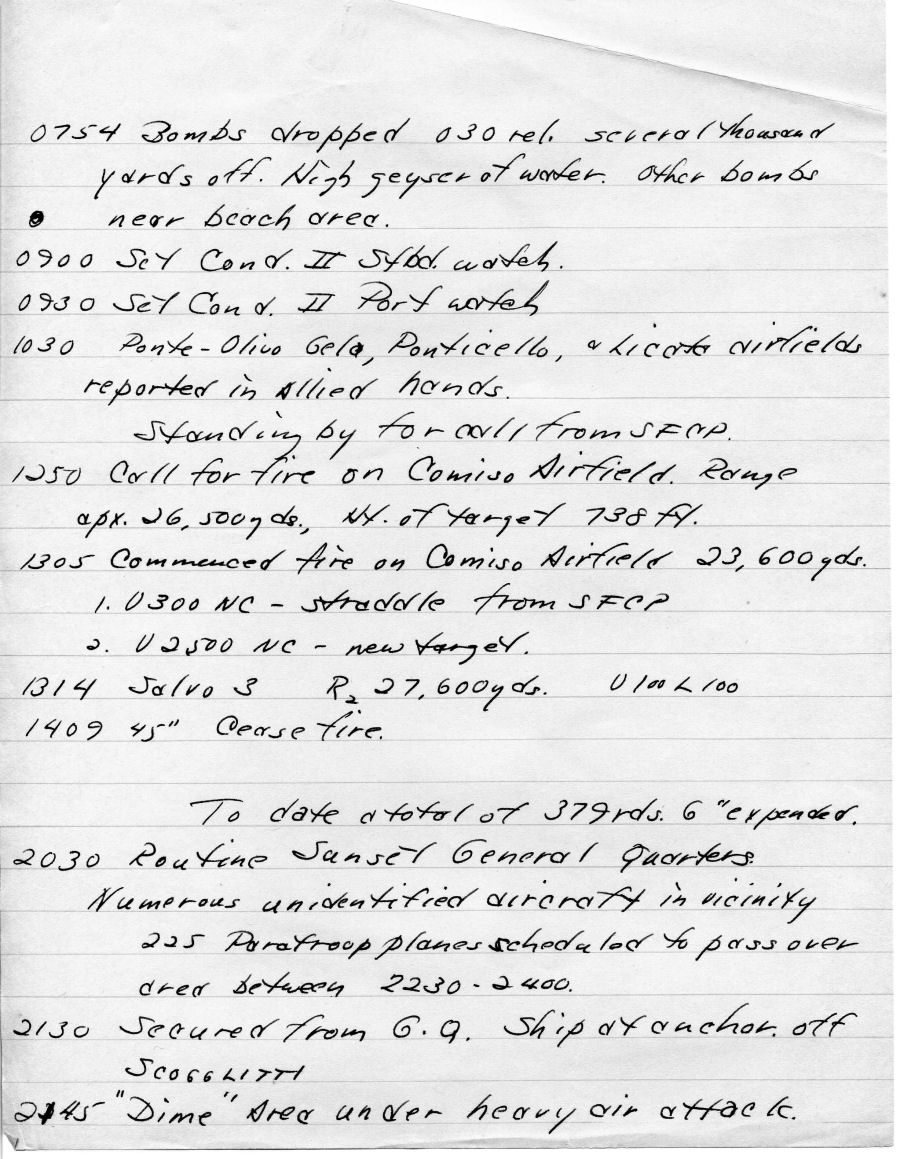 0754 Bombs dropped 030 rel. several thousand
yards off. High geyser of water. Other bombs
near beach area.
0900 Set Cond. II Stbd. watch.
0930 Set Cond. II Port watch
1030 Ponte-Olivo Gela, Ponticello, & Licata airfields
reported in Allied hands.
Standing by for call from SFCP.
1250 Call for fire on Comiso Airfield. Range
apx. 26,500 yds., Ht. of target 738 ft.
1305 Commenced fire on Comiso Airfield 23,600 yds.
1. U300 NC - straddle from SFCP
2. U2500 NC - new target.
1314 Salvo 3 R2 27,600 yds. U100 L100
1409 45" Cease fire.
To date a total of 379 rds. 6" expended.
2030 Routine Sunset General Quarters.
Numerous unidentified aircraft in vicinity
225 Paratroop planes scheduled to pass over
area between 2230-2400.
2130 Secured from G.Q. Ship at anchor. off
SCOGGLITTI
2145 "Dime" Area under heavy air attack.